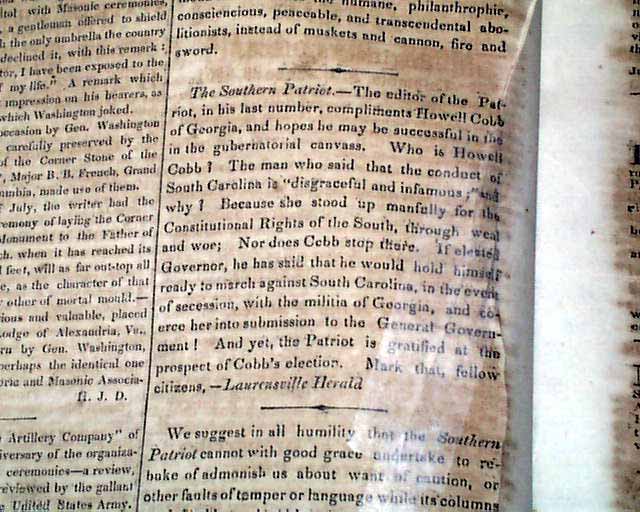 itol with Masonic ceremonies,
, a gentleman offered to shield
h the only umbrella the country
declined it, with this remark:
tor, I have been exposed to the
f my life." A remark which
impression on his hearers, as
which Washington joked.
occasion by Gen. Washington
carefully preserved by the
of the Corner Stone of the
, Major B. B. French, Grand
umbia, made use of them.
f July, the writer had the
remony of laying the Corner
Monument to the Father of
ch, when it has reached its
d feet, will as far out-top all
e, as the character of that
other of mortal mould.—
ious and valuable, placed
odge of Alexandria, Va.,
rn by Gen. Washington,
perhaps the identical one
oric and Masonic Associa-
H. J. D.
e Artillery Company" of
iversary of the organiza-
ceremonies—a review,
reviewed by the gallant
e United States Army.
the humane, philanthrophic,
consciencious, peaceable, and transcendental abo-
litionists, instead of muskets and cannon, fire and
sword.
The Southern Patriot.—The editor of the Pat-
riot, in his last number, compliments Howell Cobb
of Georgia, and hopes he may be successful in the
in the gubernatorial canvass. Who is Howell
Cobb? The man who said that the conduct of
South Carolina is "disgraceful and infamous;" and
why? Because she stood up manfully for the
Constitutional Rights of the South, through weal
and woe; Nor does Cobb stop there. If elected
Governor, he has said that he would hold himself
ready to march against South Carolina, in the event
of secession, with the militia of Georgia, and co-
erce her into submission to the General Govern-
ment! And yet, the Patriot is gratified at the
prospect of Cobb's election. Mark that, fellow
citizens,—Laurensville Herald
We suggest in all humility that the Southern
Patriot cannot with good grace undertake to re-
buke of admonish us about want of caution, or
other faults of temper or language while its columns